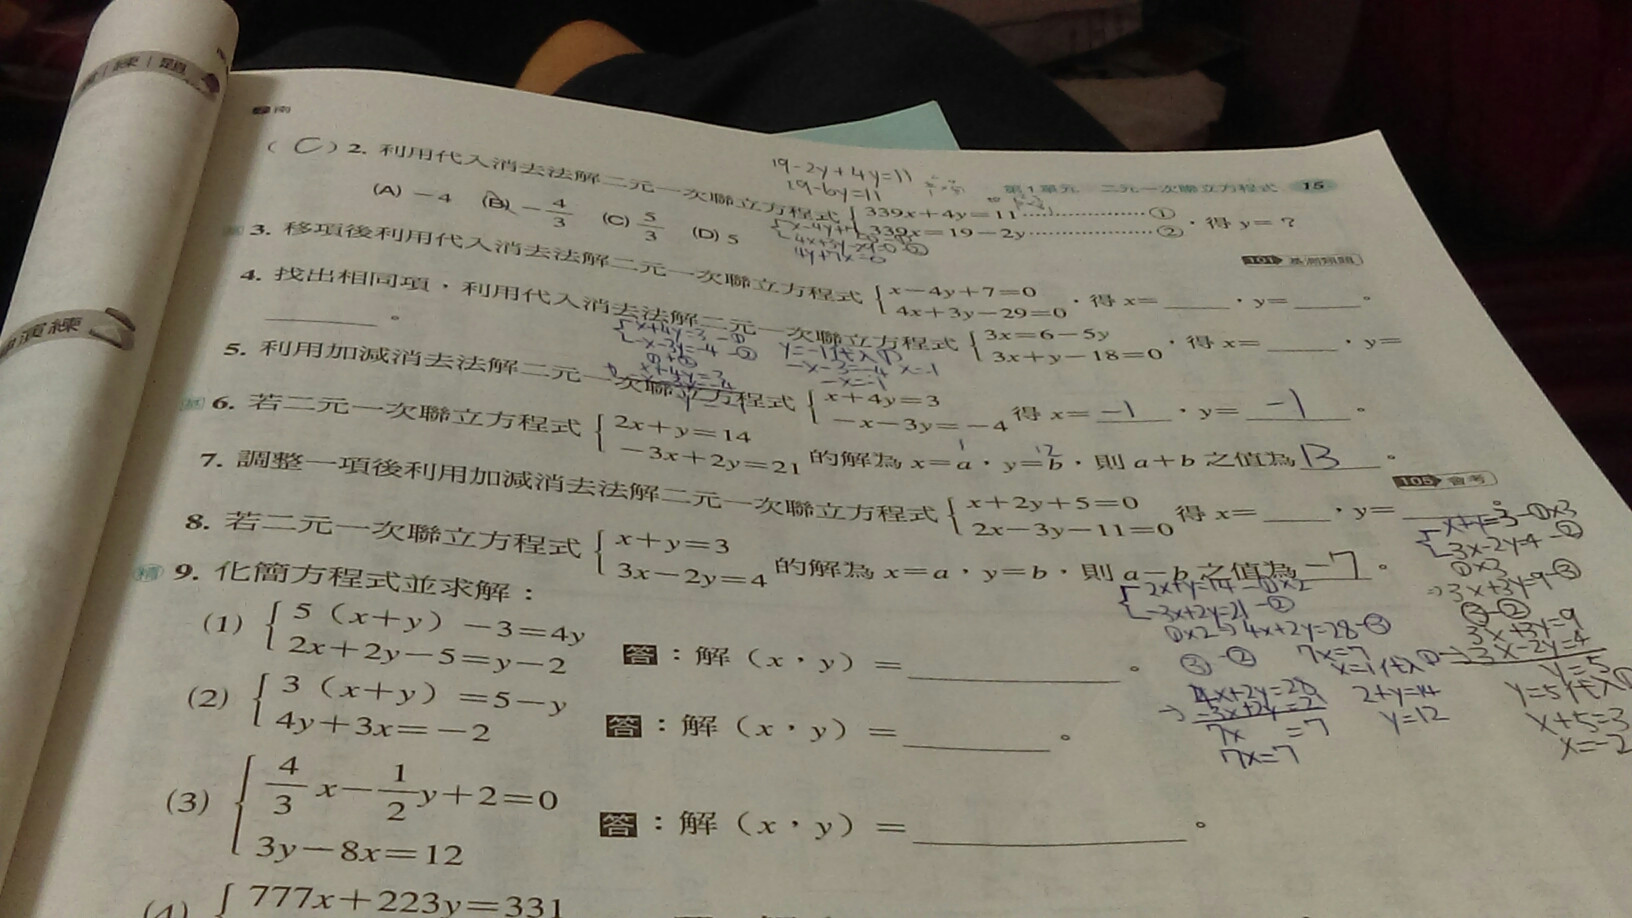 練|題
演練
南
第1單元 二元一次聯立方程式 15
19-2y+4y=11
19-6y=11
( C ) 2. 利用代入消去法解二元一次聯立方程式 { 339x+4y=11 ①
339x=19-2y ② ,得 y=?
(A) -4 (B) -4/3 (C) 5/3 (D) 5
101 基測類題
4y+7x=0
3. 移項後利用代入消去法解二元一次聯立方程式 { x-4y+7=0
4x+3y-29=0 ,得 x=____,y=____。
4. 找出相同項,利用代入消去法解二元一次聯立方程式 { 3x=6-5y
3x+y-18=0 ,得 x=____,y=
____。
x+4y=3 -①
-x-3y=-4 -②
①+②
x+4y=3
y=-1代入①
-x-3=-4 x=-1
-x=-1
5. 利用加減消去法解二元一次聯立方程式 { x+4y=3
-x-3y=-4 得 x= -1 ,y= -1 。
6. 若二元一次聯立方程式 { 2x+y=14
-3x+2y=21 的解為 x=a,y=b,則 a+b 之值為 13 。
1 12
105 會考
7. 調整一項後利用加減消去法解二元一次聯立方程式 { x+2y+5=0
2x-3y-11=0 得 x=____,y=____
8. 若二元一次聯立方程式 { x+y=3
3x-2y=4 的解為 x=a,y=b,則 a-b 之值為 -7 。
2x+y=14 -①×2
-3x+2y=21 -②
①×2→4x+2y=28-③
③-②
4x+2y=28
-3x+2y=2
7x =7
7x=7
7x=7
x=1代入①
2+y=14
y=12
3-①×3
3x-2y=4 -②
①×3
⇒3x+3y=9-③
③-②
3x+3y=9
3x-2y=4
y=5
y=5代入①
x+5=3
x=-2
精 9. 化簡方程式並求解:
(1) { 5(x+y)-3=4y
2x+2y-5=y-2 答:解(x,y)=____。
(2) { 3(x+y)=5-y
4y+3x=-2 答:解(x,y)=____。
(3) { 4/3 x-1/2 y+2=0
3y-8x=12 答:解(x,y)=____。
(4) { 777x+223y=331